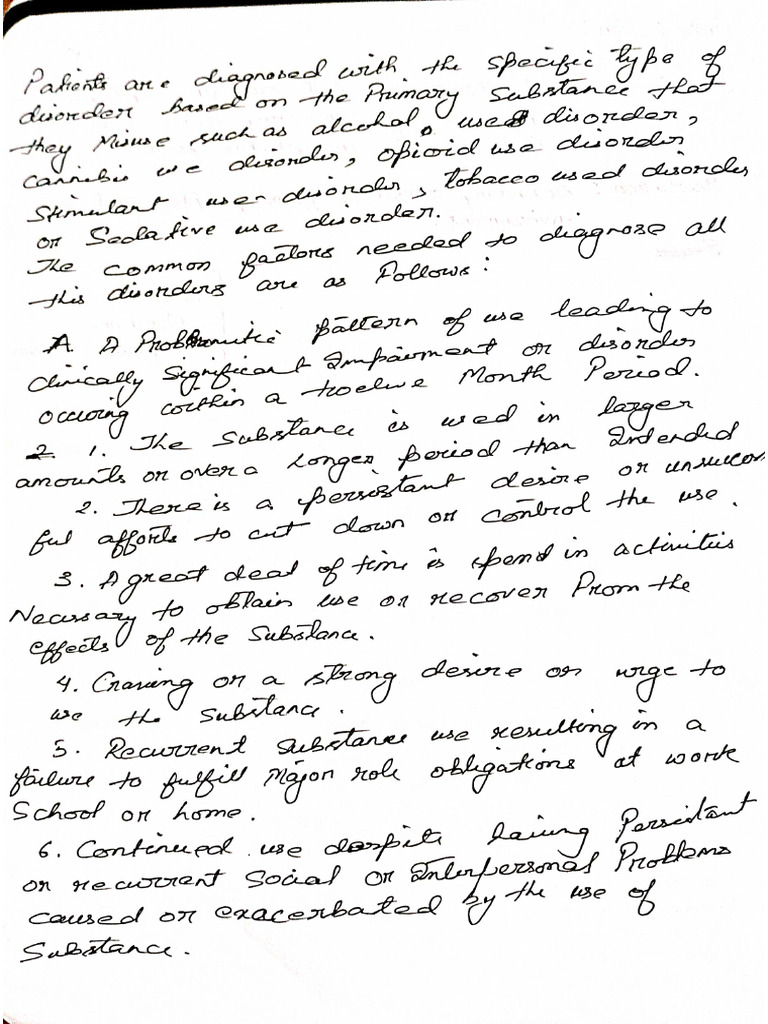 Patients are diagnosed with the specific type of
disorder based on the Primary Substance that
they Misuse such as alcohol, used disorder,
Cannibis use disorder, opioid use disorder
Stimulant use disorder, tobacco used disorder
or Sedative use disorder.
The common factors needed to diagnose all
this disorders are as Follows:
A. A Problematic pattern of use leading to
clinically Significant Impairment or disorder
occuring within a twelve Month Period.
1. The Substance is used in larger
amounts or over a Longer period than Intended
2. There is a persistant desire or unsucces
ful afforts to cut down or control the use.
3. A great deal of time is spend in activities
Necessary to obtain use or recover From the
effects of the Substance.
4. Craving or a strong desire or urge to
use the Substance.
5. Recurrent Substance use resulting in a
failure to fulfill Major role obligations at work
School or home.
6. Continued use despite having Persistant
or recurrent Social or Interpersonal Problems
caused or exacerbated by the use of
Substance.